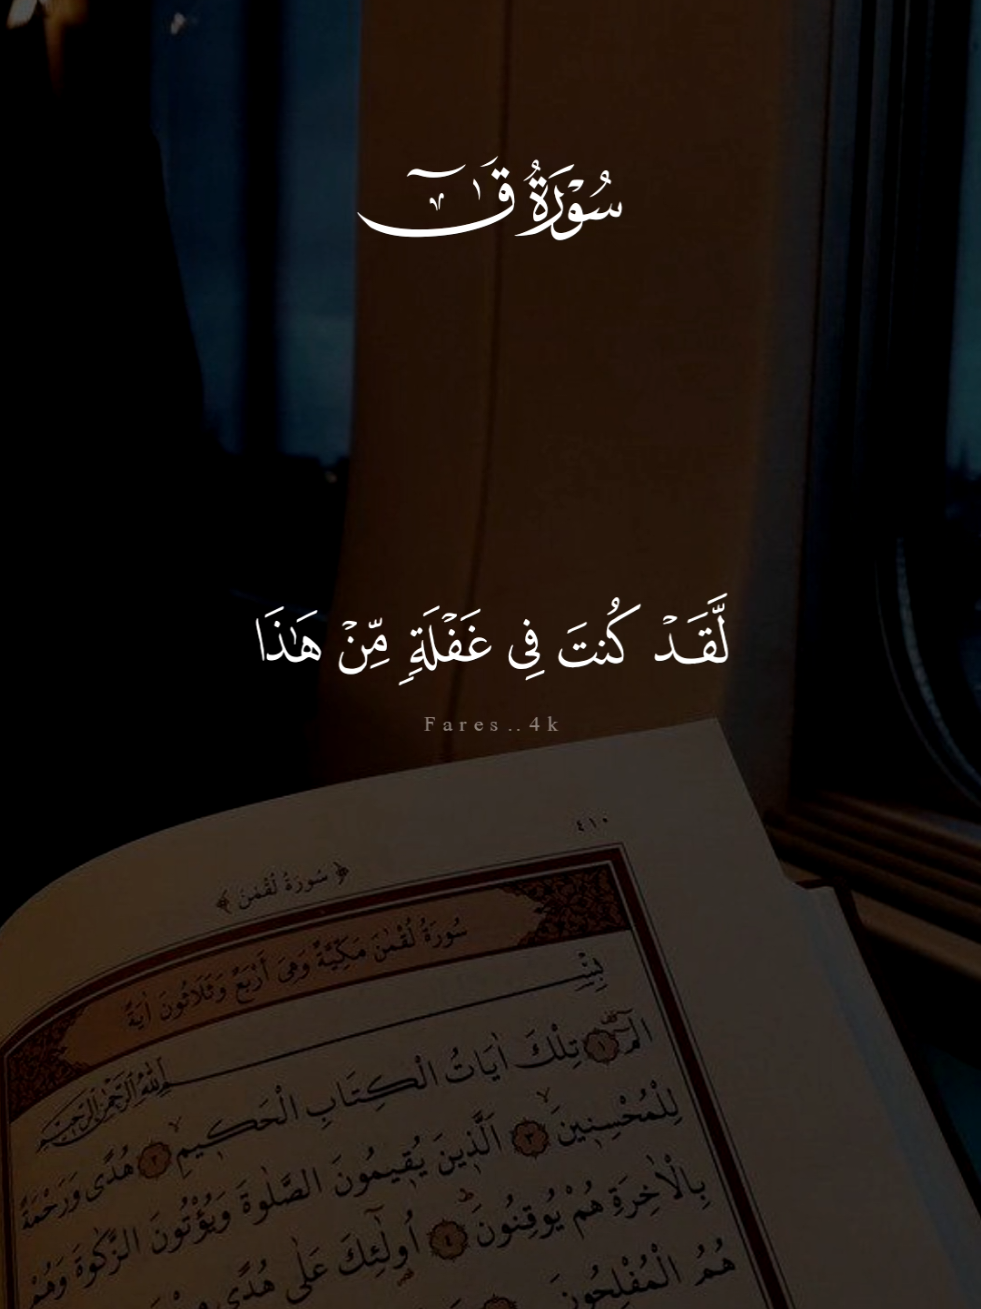 سُوْرَةُ قٓ
لَّقَدْ كُنتَ فِي غَفْلَةٍ مِّنْ هَٰذَا
Fares..4k
٤١٠
﴿ سُورَةُ لُقْمٰنَ ﴾
سُورَةُ لُقْمٰنَ مَكِّيَّةٌ وَهِيَ أَرْبَعٌ وَثَلَاثُونَ اٰيَةً
بِسْمِ اللّٰهِ الرَّحْمٰنِ الرَّحِيمِ
الٓمٓ ١ تِلْكَ اٰيَاتُ الْكِتَابِ الْحَكِيمِ ٢ هُدًى وَرَحْمَةً
لِلْمُحْسِنِينَ ٣ اَلَّذِينَ يُقِيمُونَ الصَّلٰوةَ وَيُؤْتُونَ الزَّكٰوةَ وَهُمْ
بِالْاٰخِرَةِ هُمْ يُوقِنُونَ ٤ اُولٰٓئِكَ عَلٰى هُدًى
هُمُ الْمُفْلِحُونَ